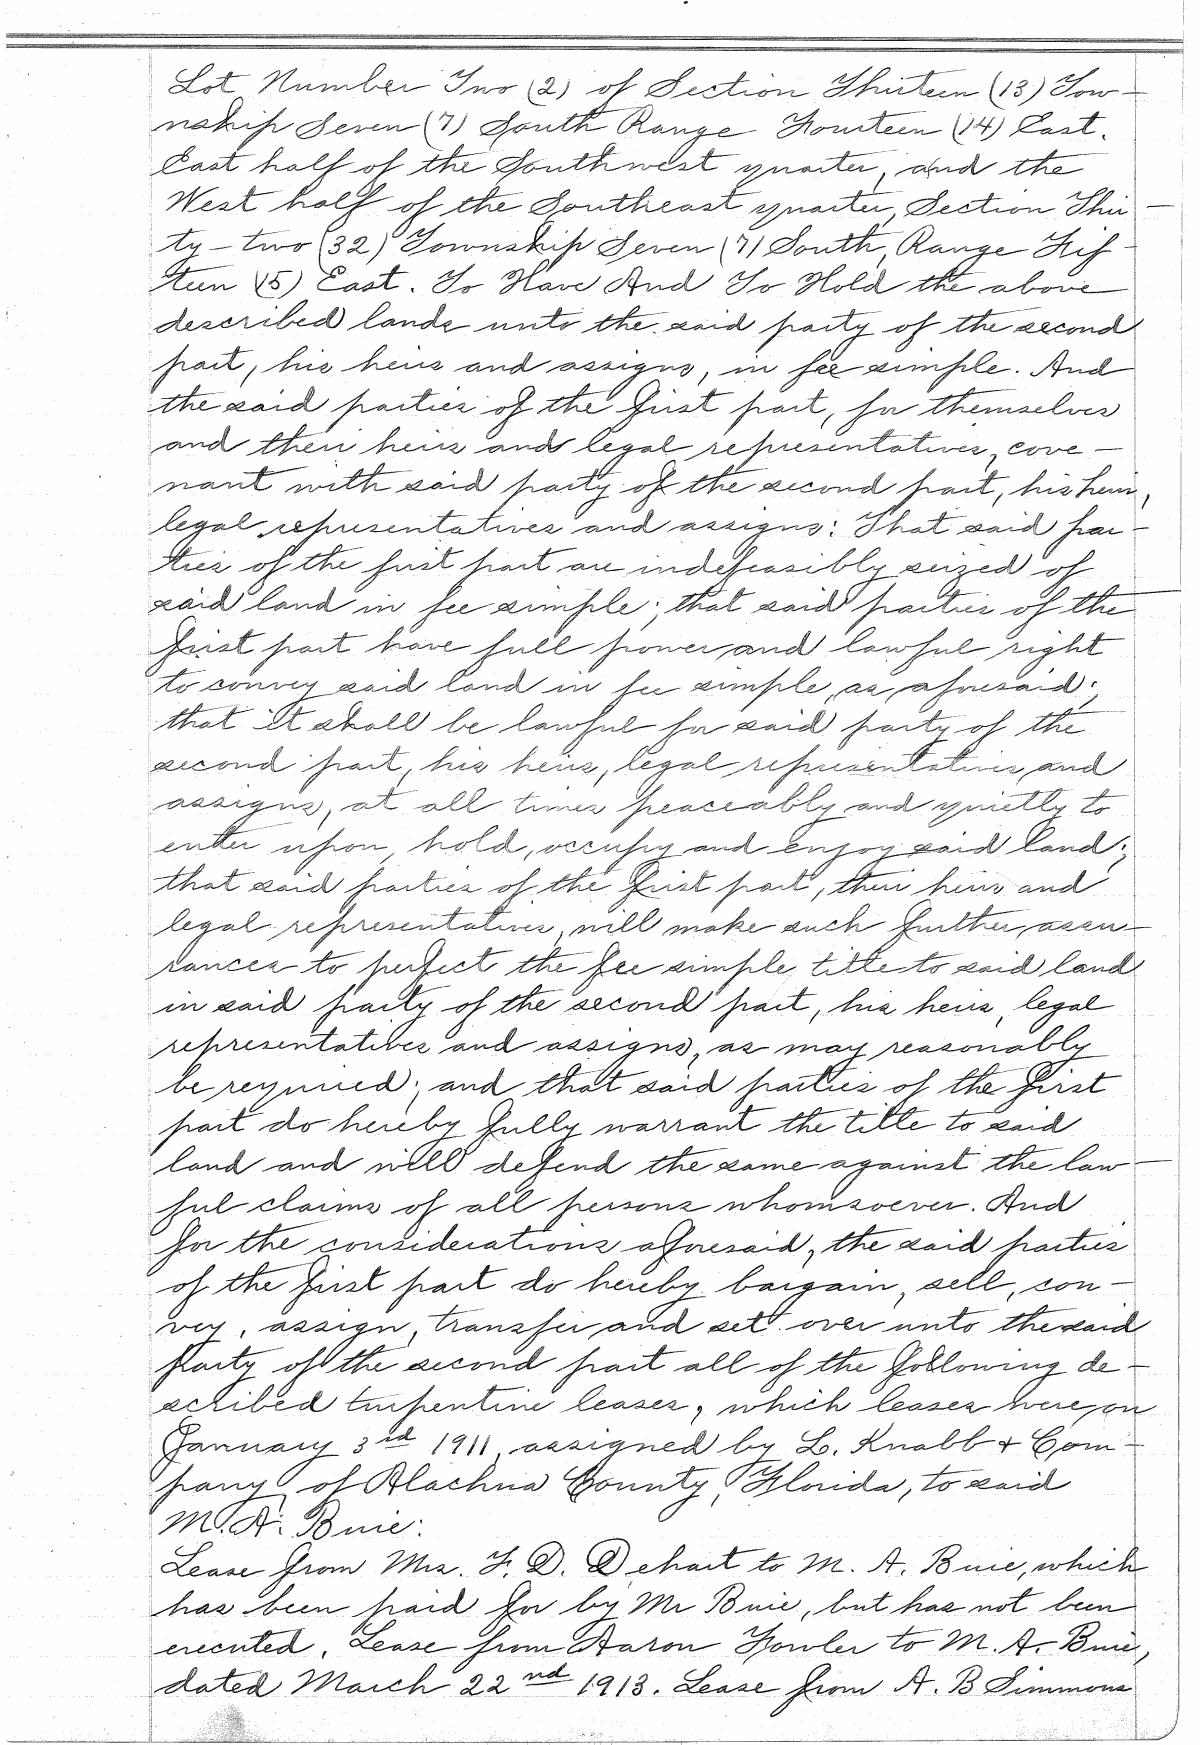 Lot Number Two (2) of Section Thirteen (13) Tow-
nship Seven (7) South Range Fourteen (14) East.
East half of the Southwest quarter, and the
West half of the Southeast quarter, Section Thir-
ty-two (32) Township Seven (7) South, Range Fif-
teen (15) East. To Have And To Hold the above
described lands unto the said party of the second
part, his heirs and assigns, in fee simple. And
the said parties of the first part, for themselves
and their heirs and legal representatives, cove-
nant with said party of the second part, his heirs,
legal representatives and assigns: That said par-
ties of the first part are indefeasibly seized of
said land in fee simple; that said parties of the
first part have full power and lawful right
to convey said land in fee simple, as aforesaid;
that it shall be lawful for said party of the
second part, his heirs, legal representatives and
assigns, at all times peaceably and quietly to
enter upon, hold, occupy and enjoy said land;
that said parties of the first part, their heirs and
legal representatives, will make such further assu-
rances to perfect the fee simple title to said land
in said party of the second part, his heirs, legal
representatives and assigns, as may reasonably
be required; and that said parties of the first
part do hereby fully warrant the title to said
land and will defend the same against the law-
ful claims of all persons whomsoever. And
for the considerations aforesaid, the said parties
of the first part do hereby bargain, sell, con-
vey, assign, transfer and set over unto the said
party of the second part all of the following de-
scribed turpentine leases, which leases were on
January 3rd 1911, assigned by L. Knabb & Com-
pany, of Alachua County, Florida, to said
M. A. Buie:
Lease from Mrs. F. D. Dehart to M. A. Buie, which
has been paid for by Mr Buie, but has not been
executed. Lease from Aaron Fowler to M. A. Buie,
dated March 22nd 1913. Lease from A. B Simmons